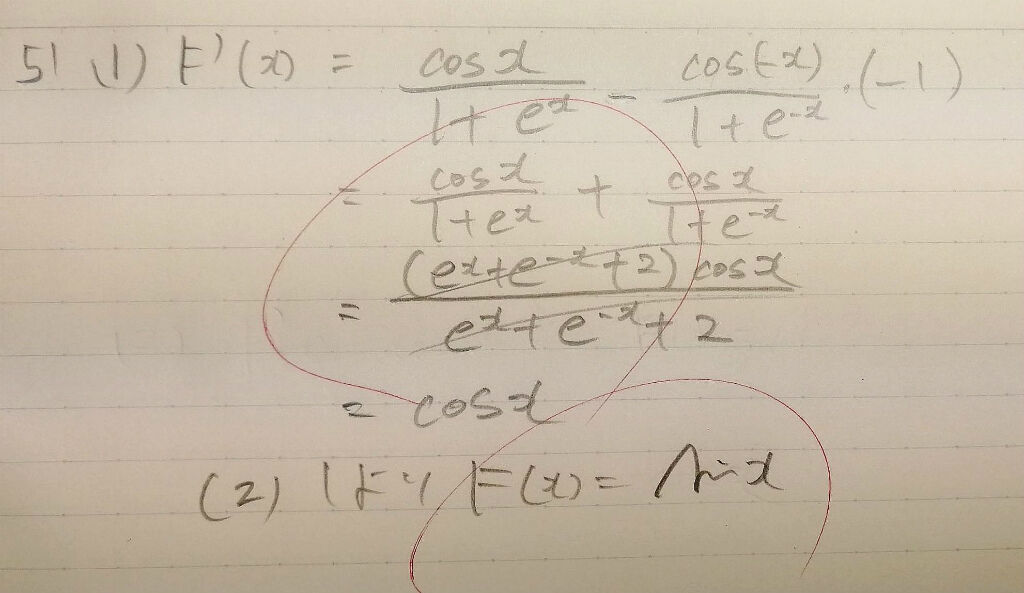 51 (1) F'(x) = cos x / (1 + e^x) - cos(-x) / (1 + e^-x) ・(-1)
= cos x / (1 + e^x) + cos x / (1 + e^-x)
= (e^x + e^-x + 2) cos x / (e^x + e^-x + 2)
= cos x
(2) 1より F(x) = sin x